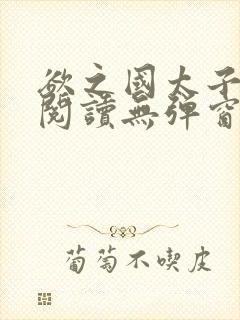 欲之國太子
閱讀無彈窗
葡萄不喫皮